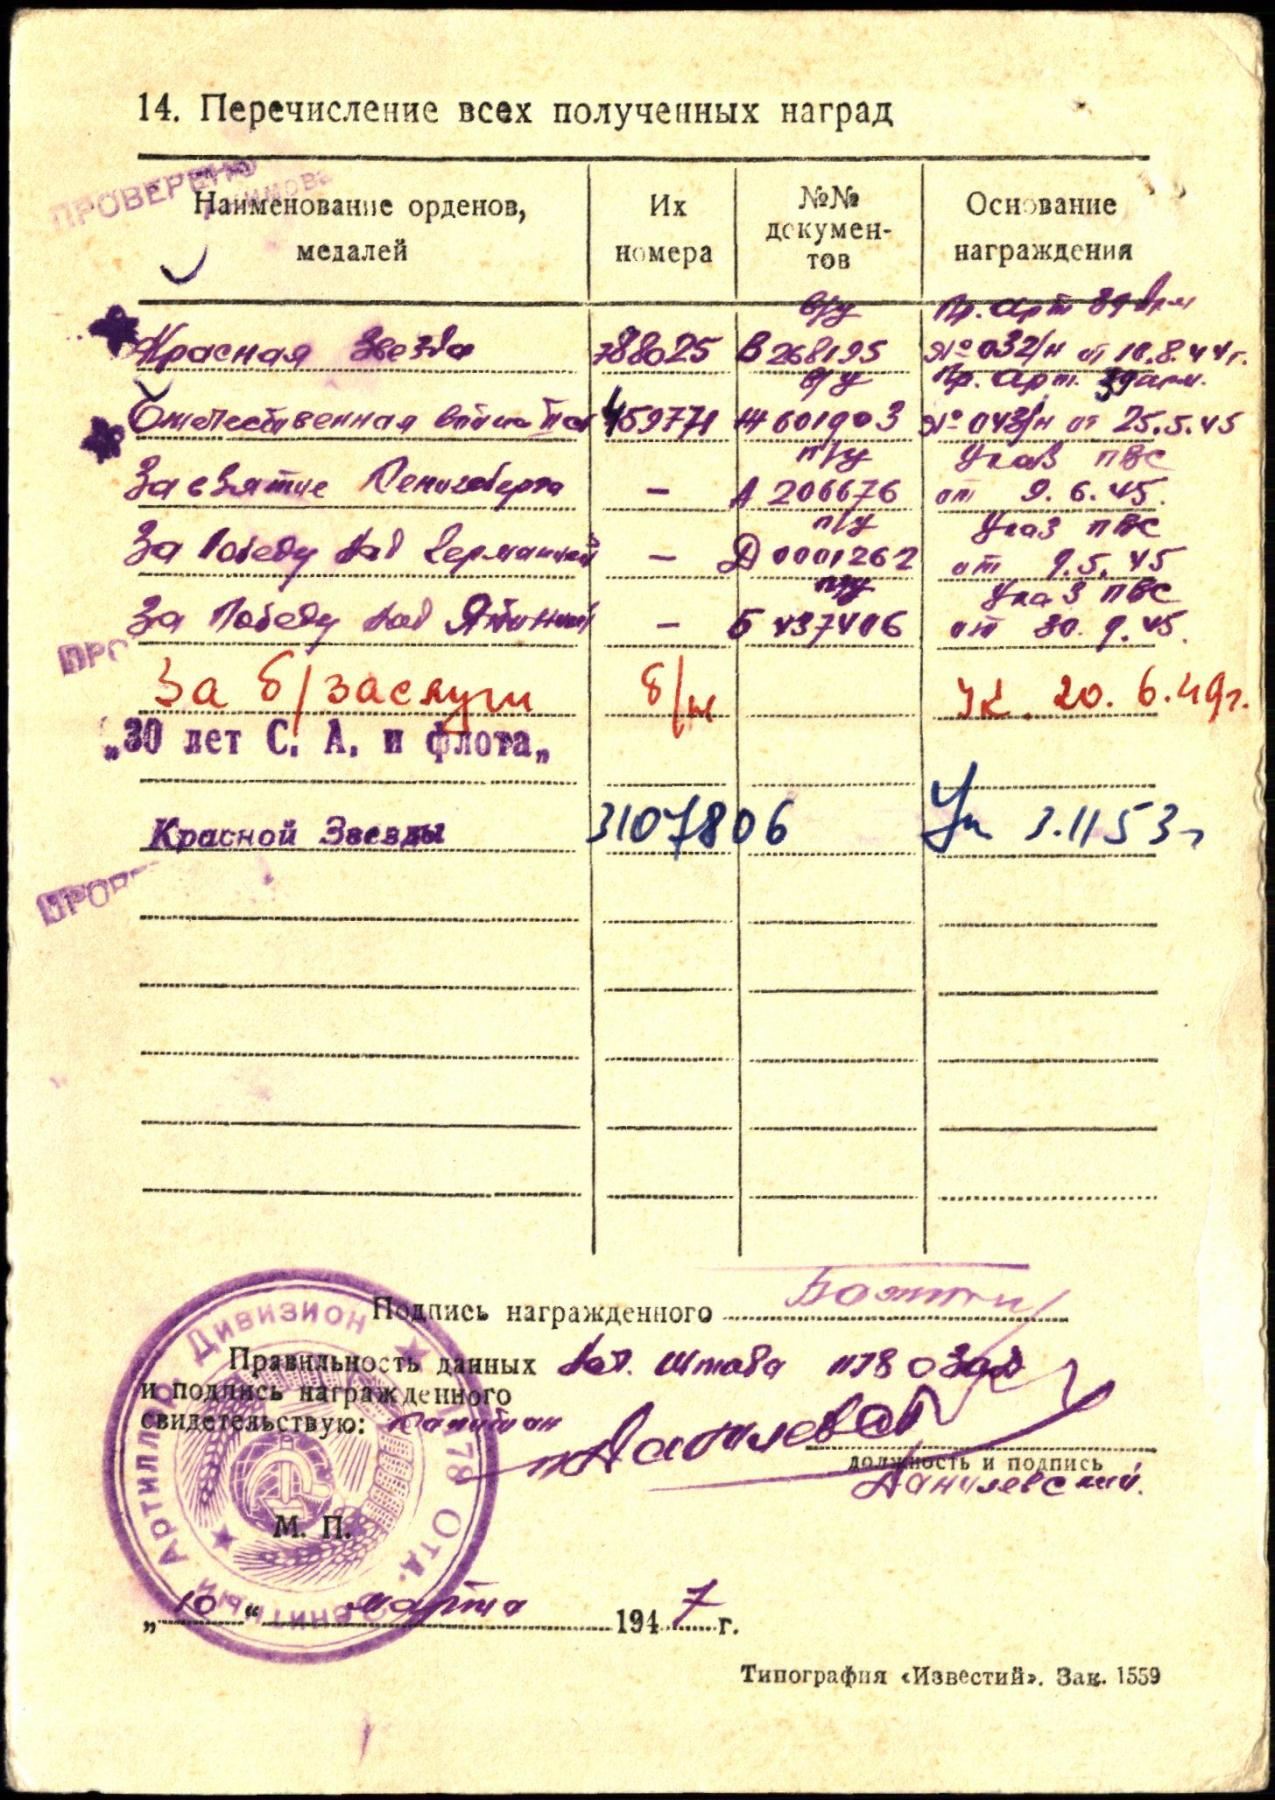 14. Перечисление всех полученных наград
ПРОВЕРЕНО
Наименование орденов, медалей
Их номера
№№ документов
Основание награждения
в/у Пр. Арт 39 Арм
Красная Звезда 788025 В 268195 № 032/н от 10.8.44г.
в/у Пр. Арт. 39 арм.
Отечественная война II ст 459771 Ж 601903 № 043/н от 25.5.45
п/у Указ ПВС
За взятие Кенигсберга – А 206676 от 9.6.45.
п/у Указ ПВС
За Победу над Германией – Д 0001262 от 9.5.45
п/у Указ ПВС
За Победу над Японией – Б 437406 от 30.9.45.
ПРО
За б/заслуги б/н Ук. 20.6.49г.
„30 лет С. А. и флота„
Красной Звезды 3107806 Ук 3.11 53г
ПРОВЕ
Подпись награжденного
Правильность данных Нач. Штаба 1178 ОЗАД
и подпись награжденного
свидетельствую: Капитан Данилевский
должность и подпись
Данилевский.
М. П.
1178 Отд. Зенитный Артиллер. Дивизион
„10" марта 1947 г.
Типография «Известий». Зак. 1559